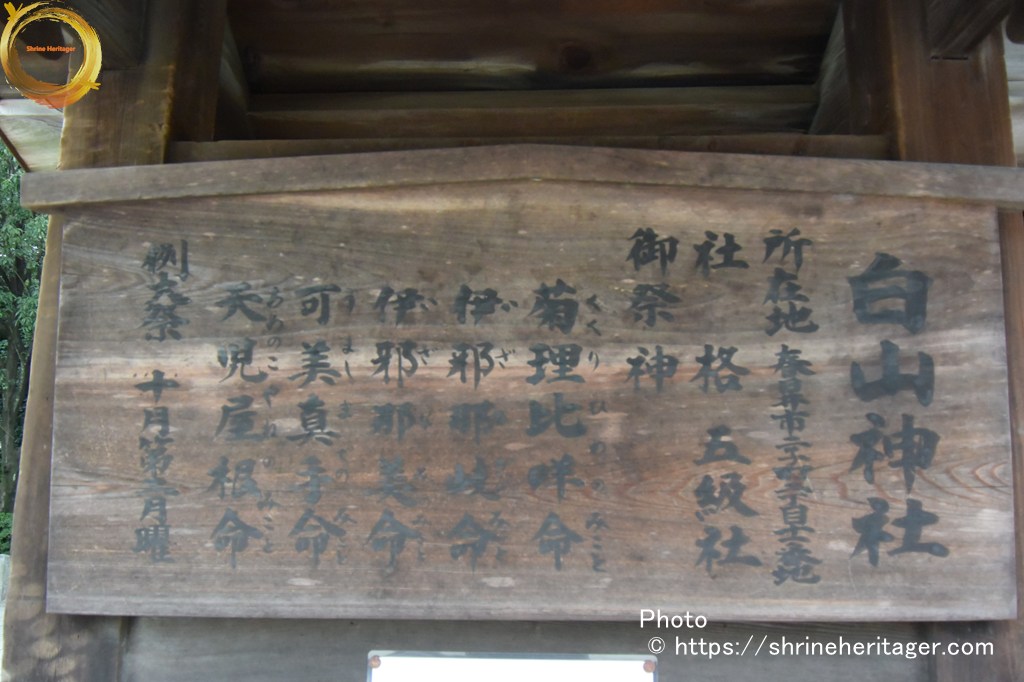 Shrine Heritager
白山神社
所在地 春日井市
社格 五級社
御祭神
菊理比咩命
くくり ひめの みこと
伊邪那岐命
伊邪那美命
可美真手命
うまし までの みこと
天児屋根命
あめのこやねのみこと
例大祭 十月第 月曜
Photo
© https://shrineheritager.com